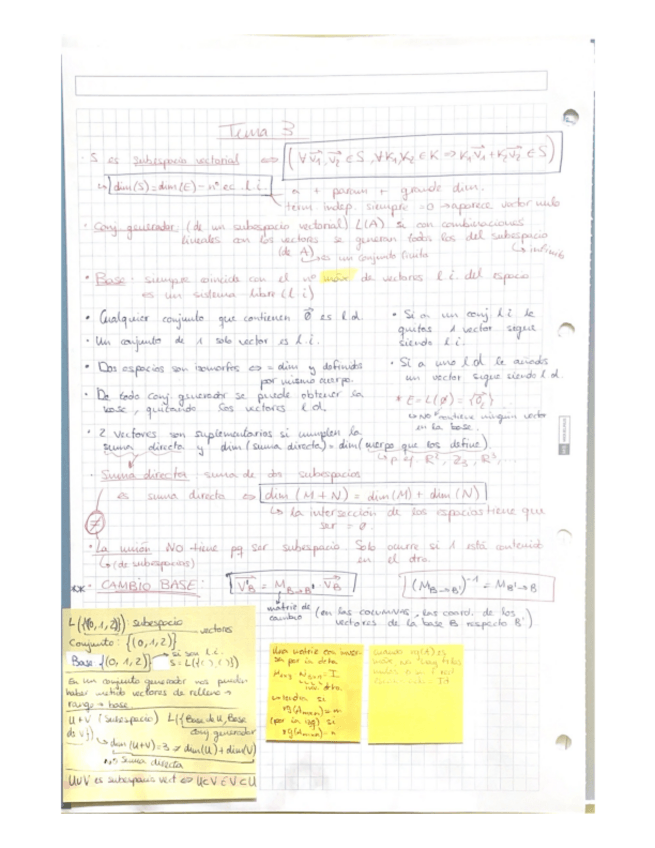 Tema 3
· S es subespacio vectorial ⇔ (∀v₁, v₂ ∈ S, ∀K₁, K₂ ∈ K ⇒ K₁v₁ + K₂v₂ ∈ S)
↳ dim(S) = dim(E) - nº ec. l.i.
a + param + grande dim.
term. indep. siempre = 0 → aparece vector nulo
· Conj. generador (de un subespacio vectorial) L(A) si con combinaciones
lineales con los vectores se generan todos los del subespacio
(de A) ↳ es un conjunto finito ↳ infinito
· Base: siempre coincide con el nº máx. de vectores l.i. del espacio
es un sistema libre (l.i)
· Cualquier conjunto que contienen 0 es l.d.
· Un conjunto de 1 solo vector es l.i.
· Dos espacios son isomorfos ⇔ = dim y definidos
por mismo cuerpo.
· De todo conj. generador se puede obtener la
base, quitando los vectores l.d.
· Si a un conj. l.i. le
quitas 1 vector sigue
siendo l.i.
· Si a uno l.d. le añades
un vector sigue siendo l.d.
* E = L(∅) = {0}
↳ No contiene ningún vector
en la base.
· 2 vectores son suplementarios si cumplen la
suma directa y dim(suma directa) = dim(cuerpo que los define).
↳ p.ej. R², Z₃, R³, ...
· Suma directa suma de dos subespacios
es suma directa ⇔ dim(M + N) = dim(M) + dim(N)
↳ la intersección de los espacios tiene que
ser = ∅.
≠
· La unión NO tiene pq ser subespacio. Solo ocurre si 1 está contenido
↳ (de subespacios) en el otro.
** · CAMBIO BASE: V_B' = M_B→B' · V_B (M_B→B')⁻¹ = M_B'→B
matriz de
cambio
(en las COLUMNAS, las coord. de los
vectores de la base B respecto B')
L({(0,1,2)}) : subespacio
Conjunto: {(0,1,2)} vectores
Base: {(0,1,2)} si son l.i.
S = L({( ), ( )})
En un conjunto generador nos pueden
haber metido vectores de relleno →
rango → base.
U + V (subespacio) L({Base de U, Base
de V}) conj. generador
↳ dim(U+V) = 3 ≠ dim(U) + dim(V)
No suma directa
U∪V es subespacio vect ⇔ U⊂V ó V⊂U
Una matriz con inver
sa por la dcha
la tendrá si
rg(Amxn) = m
(por la izq) si
rg(Amxn) = n